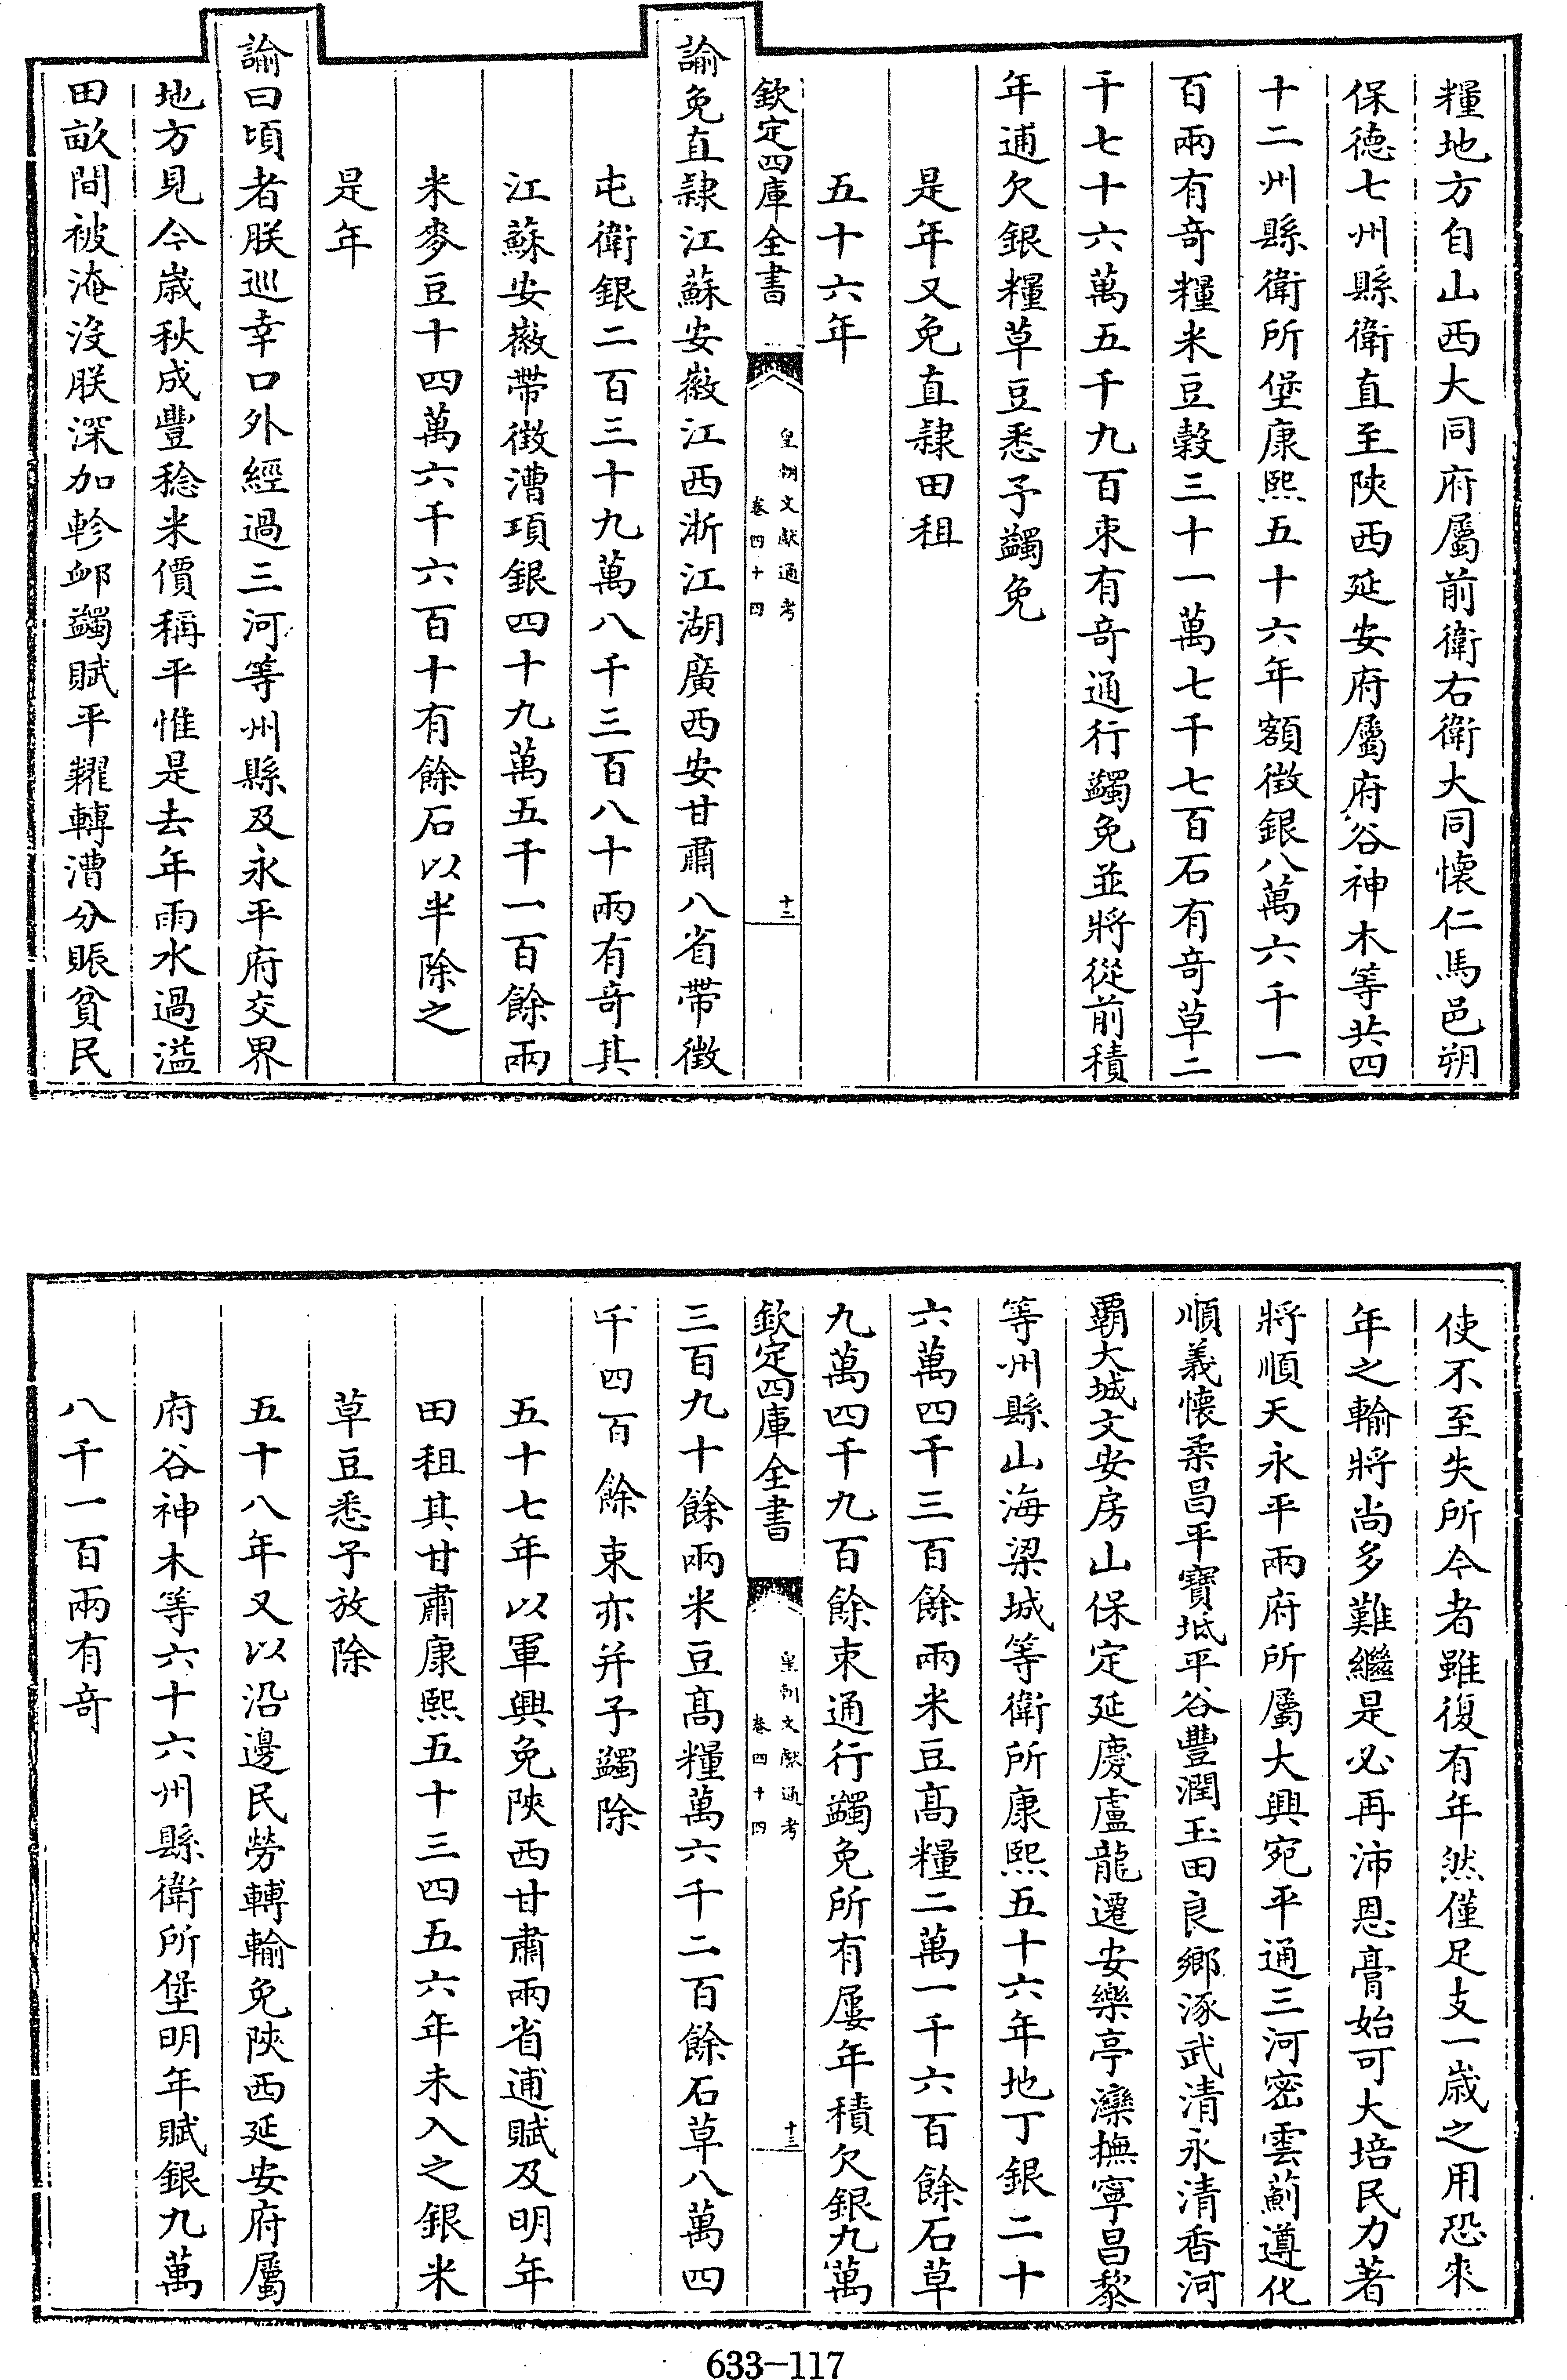 糧地方自山西大同府屬前衛右衛大同懷仁馬邑朔
保德七州縣衛直至陝西延安府屬府谷神木等共四
十二州縣衛所堡康熙五十六年額徵銀八萬六千一
百兩有奇糧米豆穀三十一萬七千七百石有奇草二
千七十六萬五千九百束有奇通行蠲免並將從前積
年逋欠銀糧草豆悉予蠲免
是年又免直隸田租
五十六年
欽定四庫全書
皇朝文獻通考
卷四十四
十二
諭免直隸江蘇安徽江西浙江湖廣西安甘肅八省帶徵
屯衛銀二百三十九萬八千三百八十兩有奇其
江蘇安徽帶徵漕項銀四十九萬五千一百餘兩
米麥豆十四萬六千六百十有餘石以半除之
是年
諭曰頃者朕巡幸口外經過三河等州縣及永平府交界
地方見今歲秋成豐稔米價稱平惟是去年雨水過溢
田畝間被淹沒朕深加軫卹蠲賦平糶轉漕分賑貧民
使不至失所今者雖復有年然僅足支一歲之用恐來
年之輸將尚多難繼是必再沛恩膏始可大培民力著
將順天永平兩府所屬大興宛平通三河密雲薊遵化
順義懷柔昌平寶坻平谷豐潤玉田良鄉涿武清永清香河
霸大城文安房山保定延慶盧龍遷安樂亭灤撫寧昌黎
等州縣山海梁城等衛所康熙五十六年地丁銀二十
六萬四千三百餘兩米豆高糧二萬一千六百餘石草
九萬四千九百餘束通行蠲免所有屢年積欠銀九萬
欽定四庫全書
皇朝文獻通考
卷四十四
十三
三百九十餘兩米豆高糧萬六千二百餘石草八萬四
千四百餘束亦并予蠲除
五十七年以軍興免陝西甘肅兩省逋賦及明年
田租其甘肅康熙五十三四五六年未入之銀米
草豆悉予放除
五十八年又以沿邊民勞轉輸免陝西延安府屬
府谷神木等六十六州縣衛所堡明年賦銀九萬
八千一百兩有奇
633-117